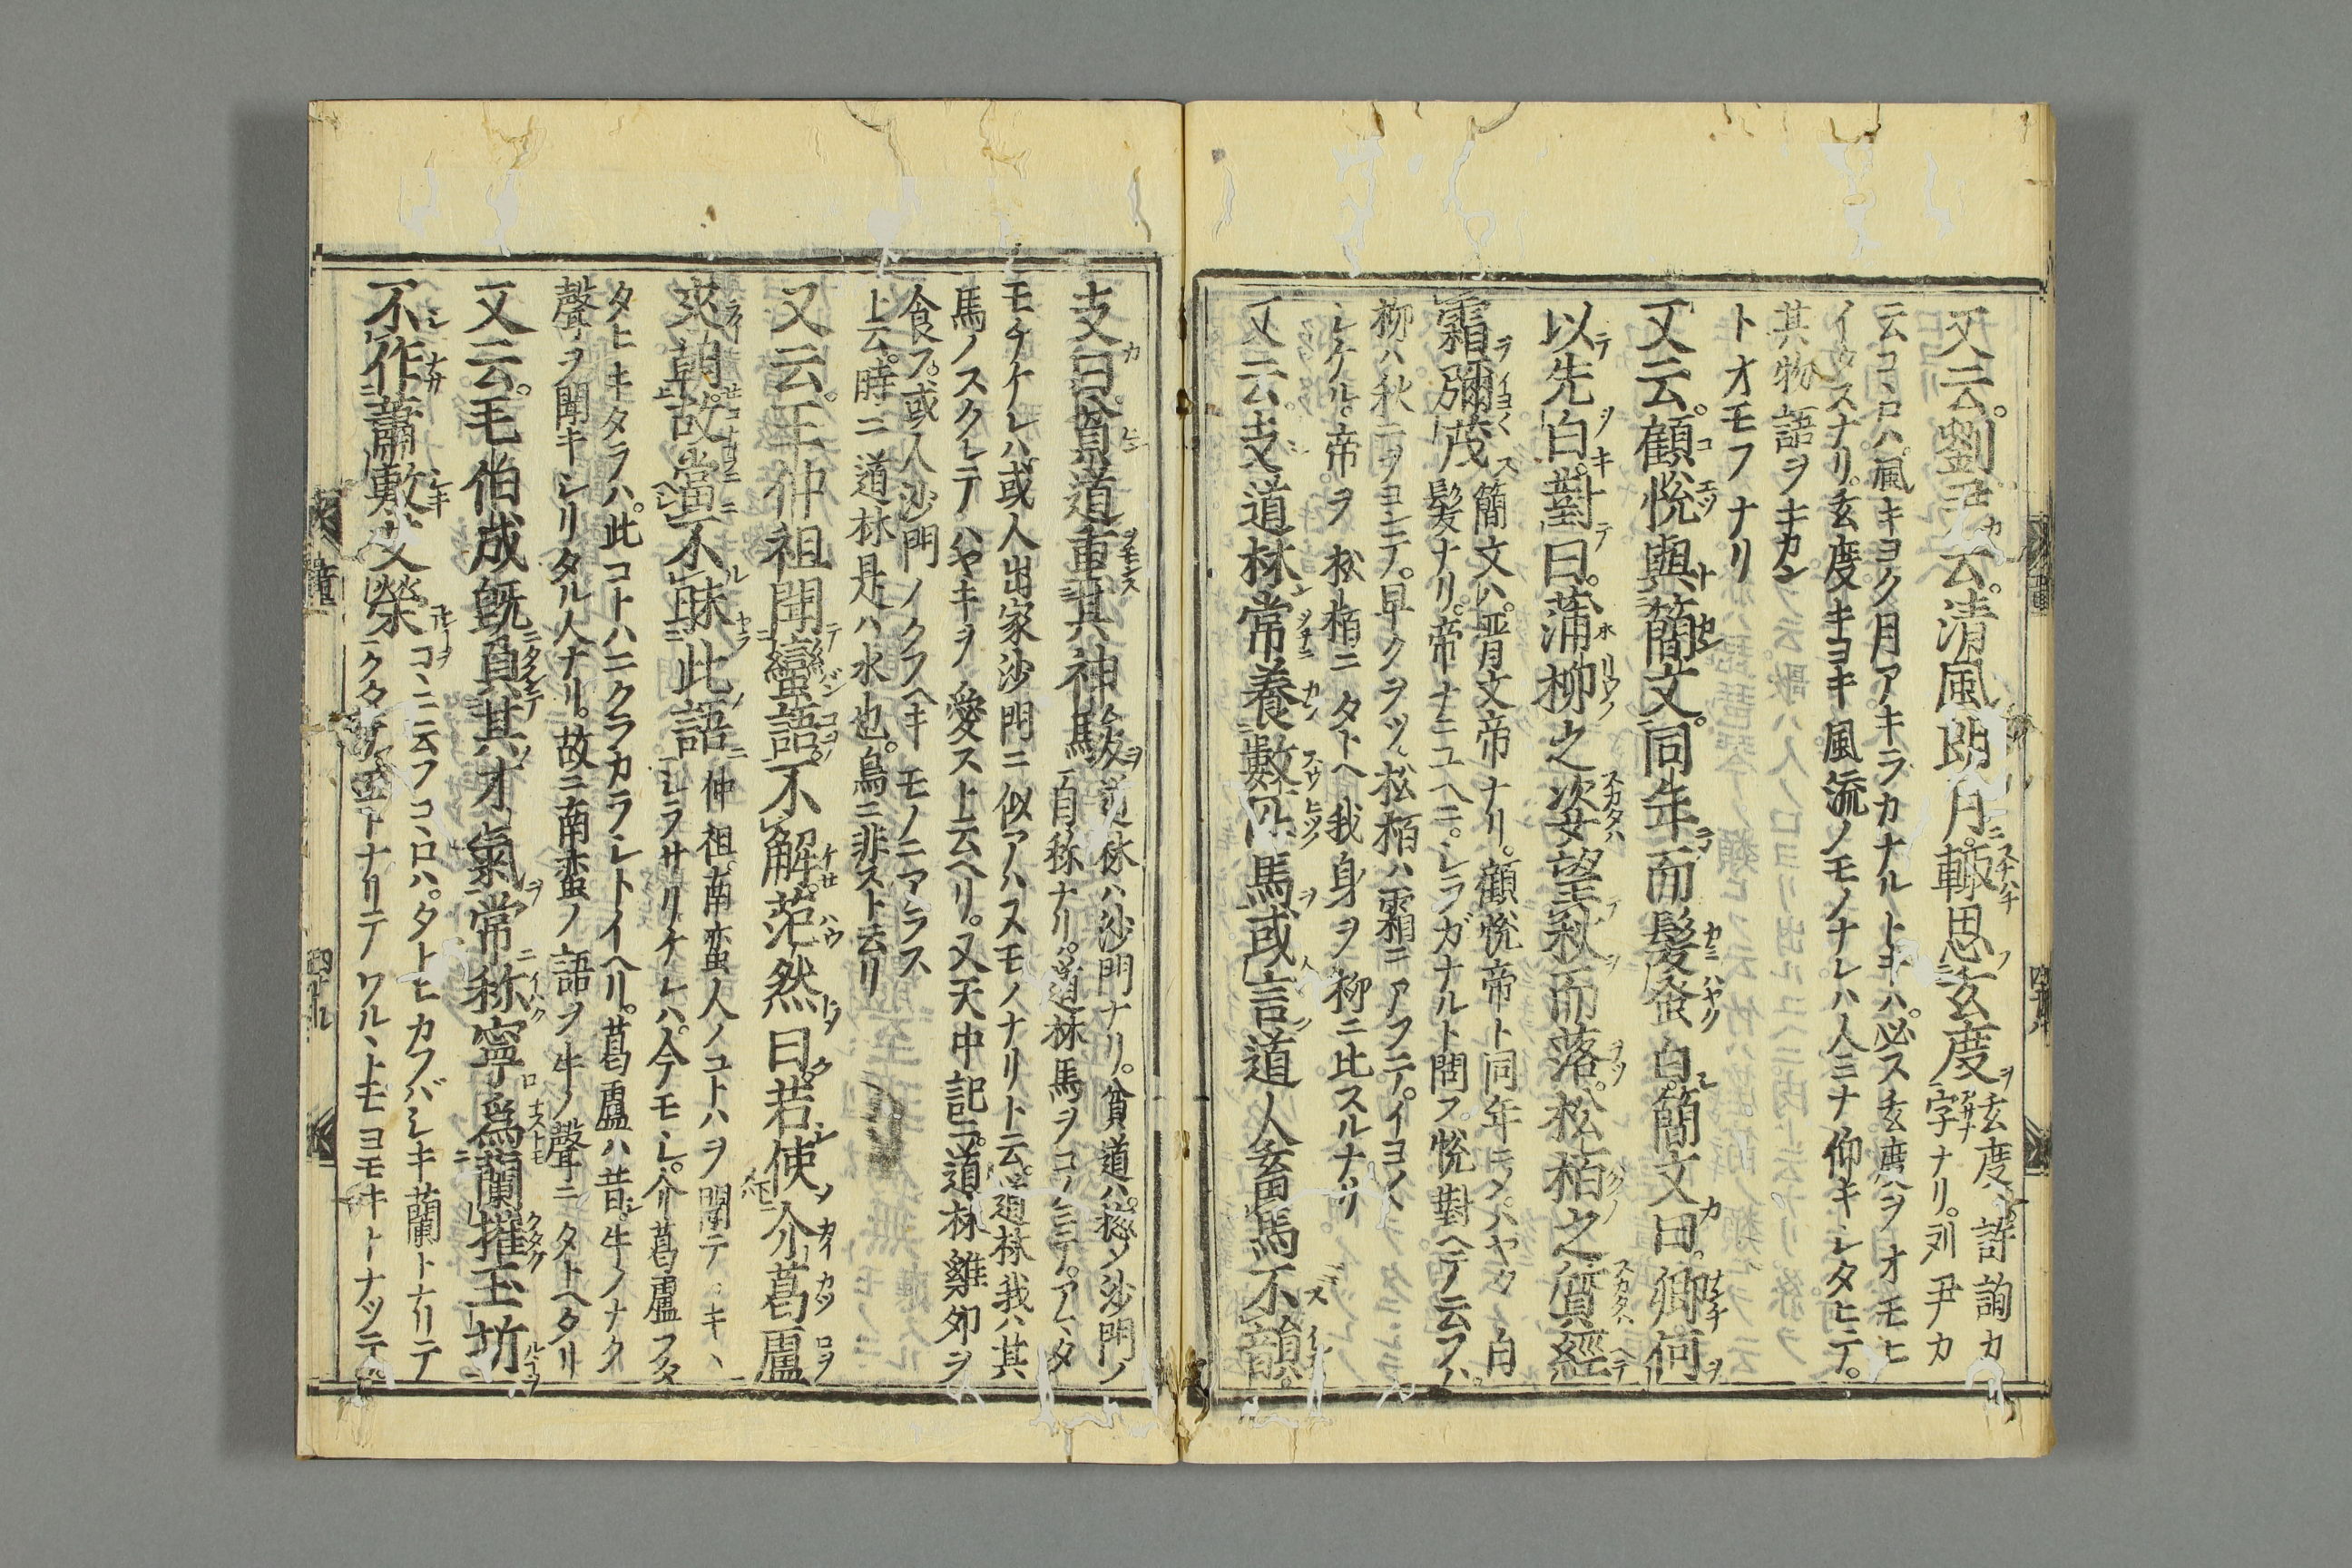 又云。劉尹云。清風朗月。輙思玄度。玄度ハ許詢カ字ナリ。刘尹カ
云コヽロハ。風キヨク月アキラカナルトキハ。必ス玄度ヲオモヒ
イタスナリ。玄度キヨキ風流ノモノナレハ人ミナ仰キシタヒテ。
其物語ヲキカン
トオモフナリ
又云。顧悦與簡文。同年而髮蚤白。簡文曰。卿何
以先白。對曰。蒲柳之姿望秋而落。松栢之質經
霜彌茂。簡文ハ。晋文帝ナリ。顧悦帝ト同年ニノハヤク白
髮ナリ。帝ナニユヘニ。シラガナルト問フ。悦對ヘテノ云フハ。
柳ハ秋ニヲヨンテ。早クラツ。松栢ハ霜ニアフテ。イヨ〱
シケル。帝ヲ松栢ニタトヘ我身ヲ柳ニ比スルナリ
又云。支道林常養數匹馬。或言道人畜馬不韻。
支曰。貧道重其神駿。道林ハ沙門ナリ。貧道ハ。惣ソ沙門ノ
自称ナリ。道林馬ヲコノミテ。アマタ
モチケレハ。或人出家沙門ニ似アハスモノナリト云。道林我ハ其
馬ノスクレテハヤキヲ愛スト云ヘリ。又天中記ニ。道林雞卵ヲ
食フ。或人沙門ノクフヘキモノニアラス
ト云。時ニ道林是ハ水也。鳥ニ非スト云リ
又云。王仲祖聞蠻語。不解。茫然曰。若使介葛盧
來朝。故當不昧此語。仲祖。南蛮人ノコトハヲ聞テ。キヽ
シラサリケレハ。今モシ。介葛盧フタ
タヒキタラハ。此コトハニクラカラシトイヘリ。葛盧ハ昔。牛ノナク
聲ヲ聞キシリタル人ナリ。故ニ南蛮ノ語ヲ牛ノ聲ニタトヘタリ
又云。毛伯成既負其才氣。常称寧爲蘭摧玉折。
不作蕭敷艾榮。コヽニ云フコヽロハ。タトヒカフバシキ蘭トナリテ
クタケ。玉トナリテワルヽトモ。ヨモキトナツテ。